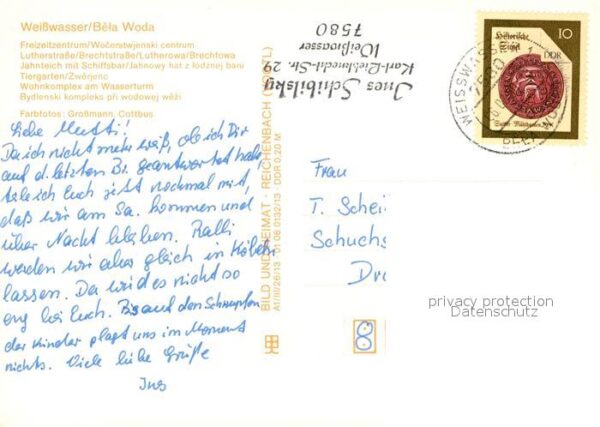 Weißwasser/Běła Woda
Freizeitzentrum/Wočerstwjenski centrum
Lutherstraße/Brechtstraße/Lutherowa/Brechtowa
Jahnteich mit Schiffsbar/Jahnowy hat z łódźnej baru
Tiergarten/Zwěrjenc
Wohnkomplex am Wasserturm
Bydlenski kompleks při wodowej wěži
Farbfotos: Großmann, Cottbus
Liebe Mutti!
Da ich nicht mehr weiß, ob ich Dir
auf d. letzten Br. geantwortet habe
teile ich Euch jetzt nochmal mit,
daß wir am Sa. kommen und
über Nacht bleiben. Ralli
werden wir aber gleich in
lassen. Da wird es nicht so
eng bei Euch. Bis auf den Schnupfen
der Kinder plagt uns im Moment
nichts. Viele liebe Grüße
Ines
BILD UND HEIMAT · REICHENBACH (VOGTL)
A1/III/26/13 01 06 0132/13 DDR 0,20 M
Ines Schibilsky
Karl-Liebknecht-Str. 29
Weißwasser
7580
Historische
Siegel
10
DDR
WEISSWASSER
7580
Frau
T. Schei
Schuchs
Dr
privacy protection
Datenschutz
8